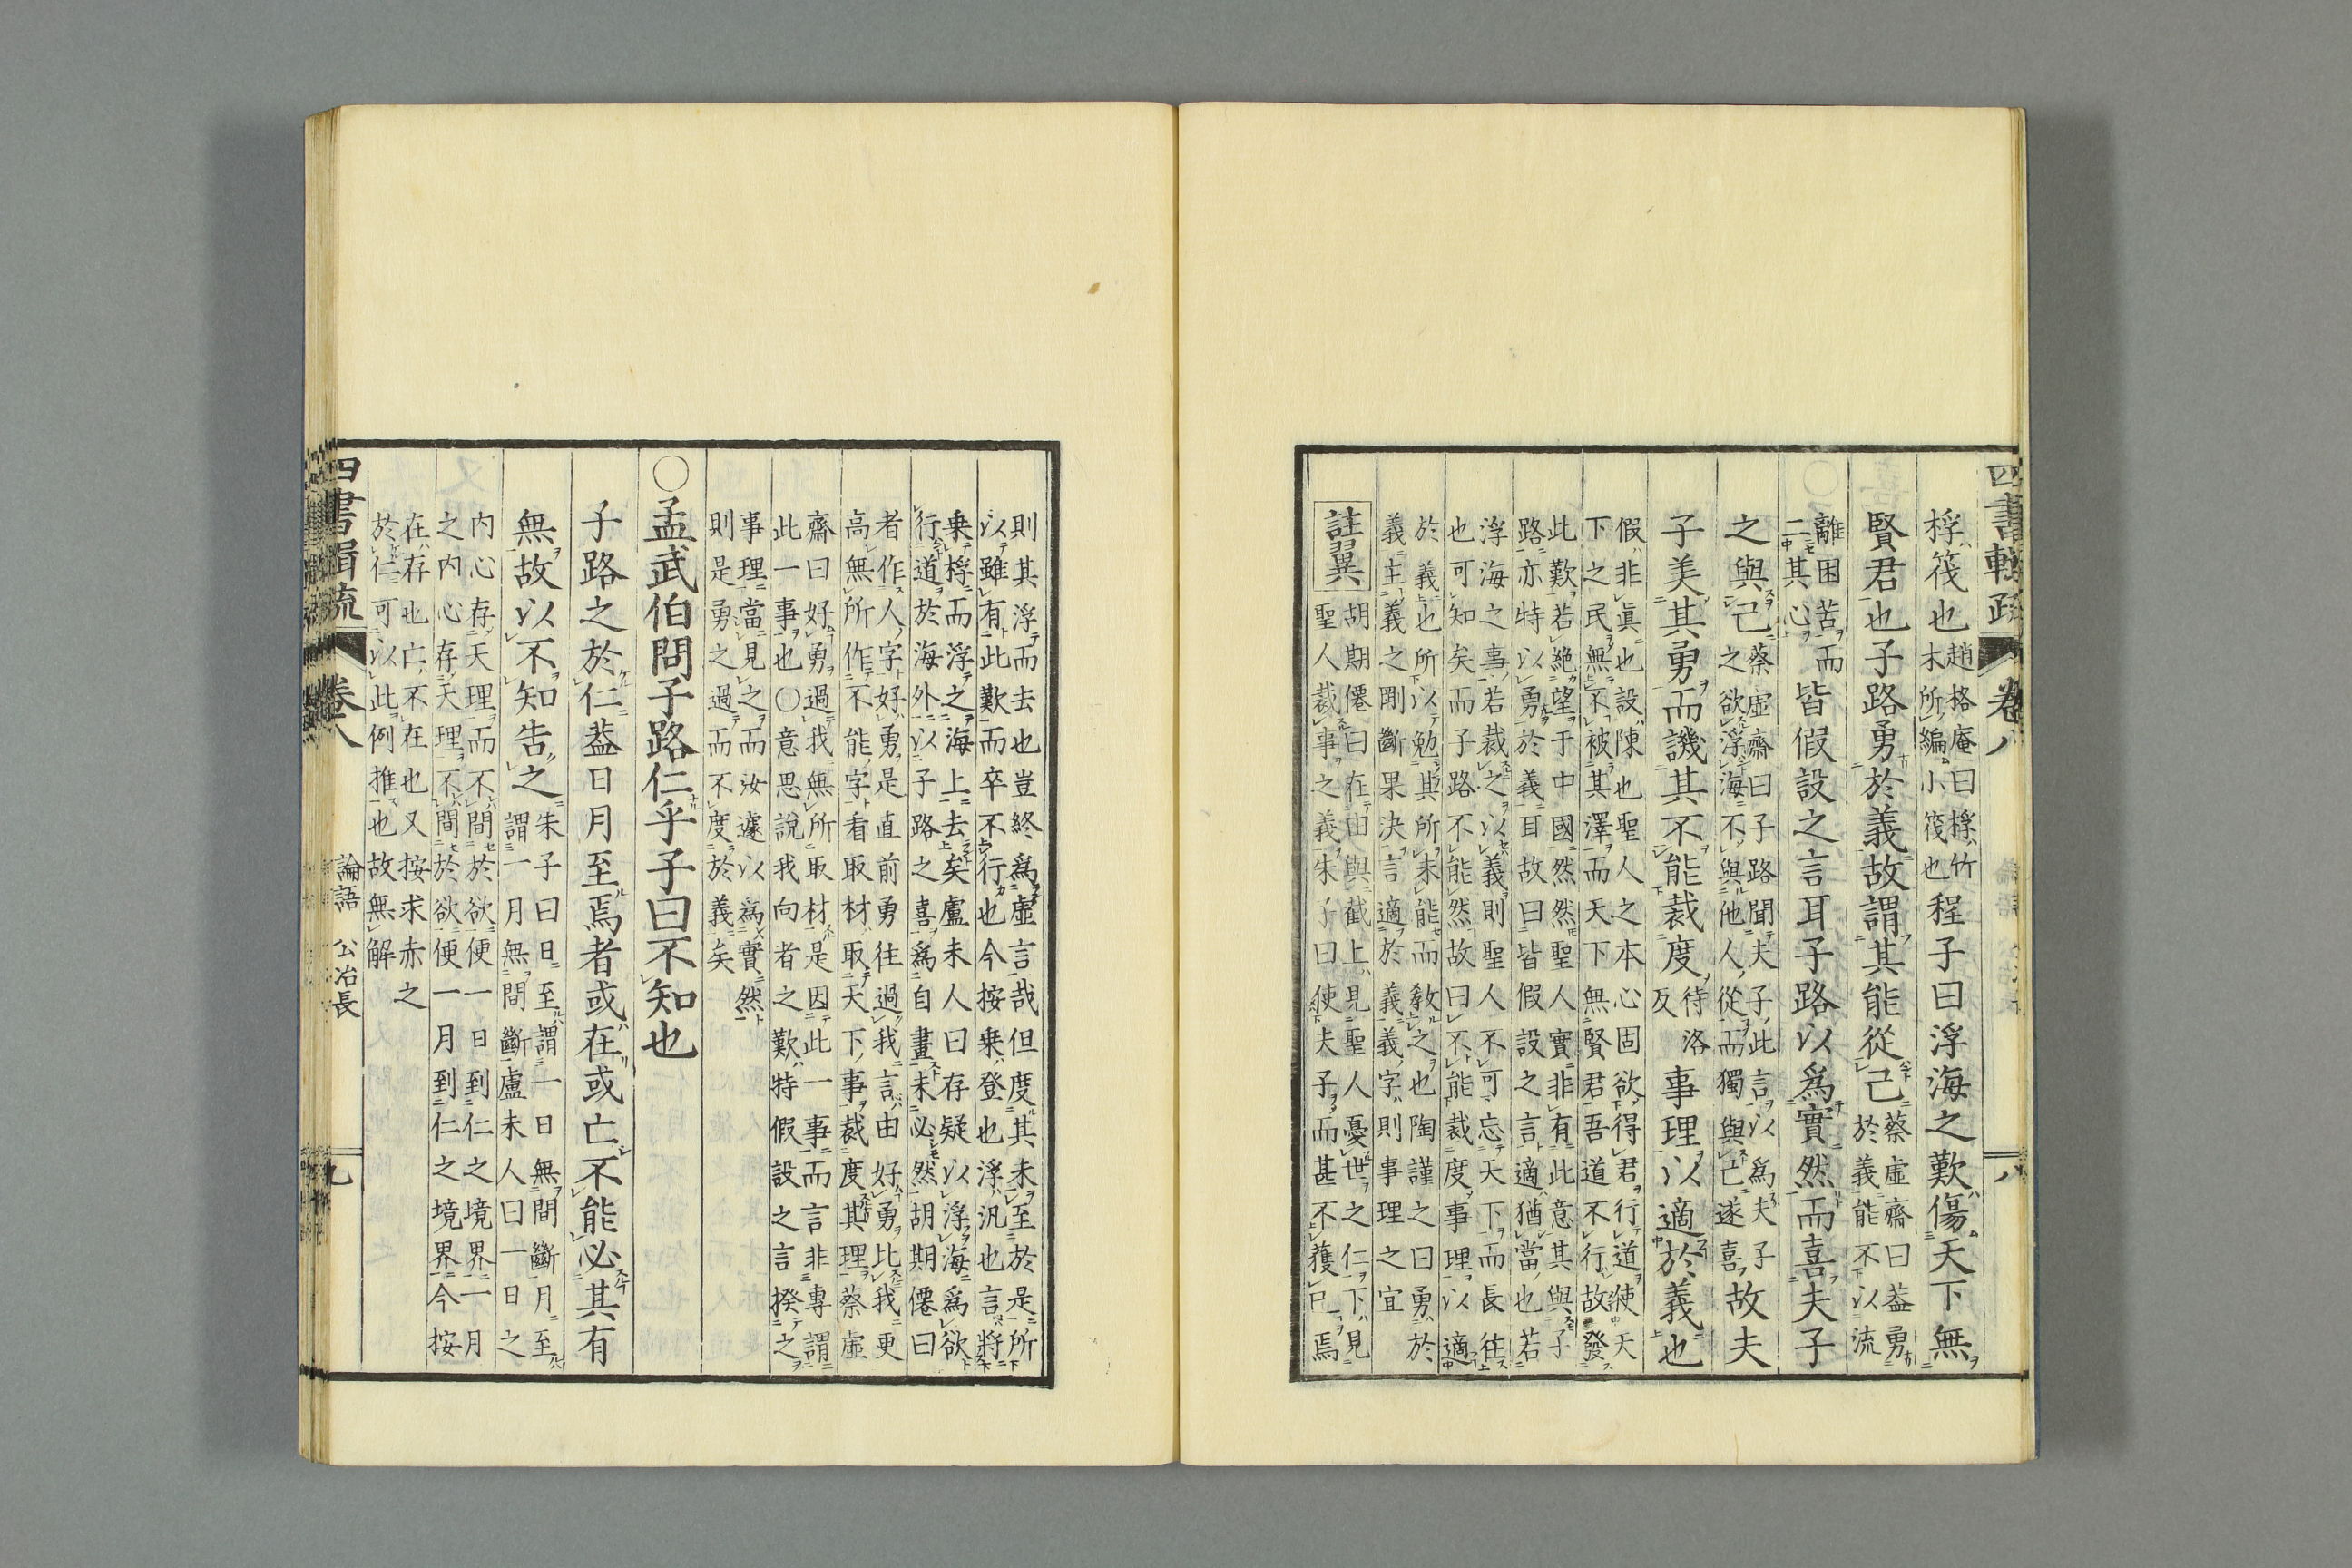 四書輯疏 卷八 八
桴筏也趙格庵曰桴竹
木所編小筏也程子曰浮海之歎傷天下無
賢君也子路勇於義故謂其能從己蔡虛齋曰葢勇
於義能不以流
離困苦而
二其心皆假設之言耳子路以爲實然而喜夫子
之與己蔡虛齋曰子路聞夫子此言以爲夫子
之欲浮海不與他人從而獨與己遂喜故夫
子美其勇而譏其不能裁度待洛
反事理以適於義也
假非眞也設陳也聖人之本心固欲得君行道使天
下之民無不被其澤而天下無賢君吾道不行故發
此歎若絶望于中國然然聖人實非有此意其與子
路亦特以勇於義耳故曰皆假設之言適猶當也若
浮海之事若裁之以義則聖人不可忘天下而長往
也可知矣而子路不能然故曰不能裁度事理以適
於義也所以勉其所未能而敎之也陶謹之曰勇於
義主義之剛斷果決言適於義義字則事理之宜
註翼胡期僊曰在由與截上見聖人憂世之仁下見
聖人裁事之義朱子曰使夫子而甚不獲已焉
則其浮而去也豈終爲虛言哉但度其未至於是所
以雖有此歎而卒不行也今按乗登也浮汎也言將
乗桴而浮之海上去矣盧未人曰存疑以浮海爲欲
行道於海外以子路之喜爲自畫未必然胡期僊曰
者作人字好勇是直前勇往過我言由好勇比我更
高無所作不能字看取材取天下事裁度其理蔡虛
齋曰好勇過我無所取材是因此一事而言非專謂
此一事也〇意思說我向者之歎特假設之言揆之
事理當見之而汝遽以爲實然
則是勇之過而不度於義矣
〇孟武伯問子路仁乎子曰不知也
子路之於仁葢日月至焉者或在或亡不能必其有
無故以不知告之朱子曰日至謂一日無間斷月至
謂一月無間斷盧未人曰一日之
內心存天理而不間於欲便一日到仁之境界一月
之內心存天理不間於欲便一月到仁之境界今按
在存也亡不在也又按求赤之
於仁可以此例推也故無解
四書輯疏 卷八 論語 公冶長 九